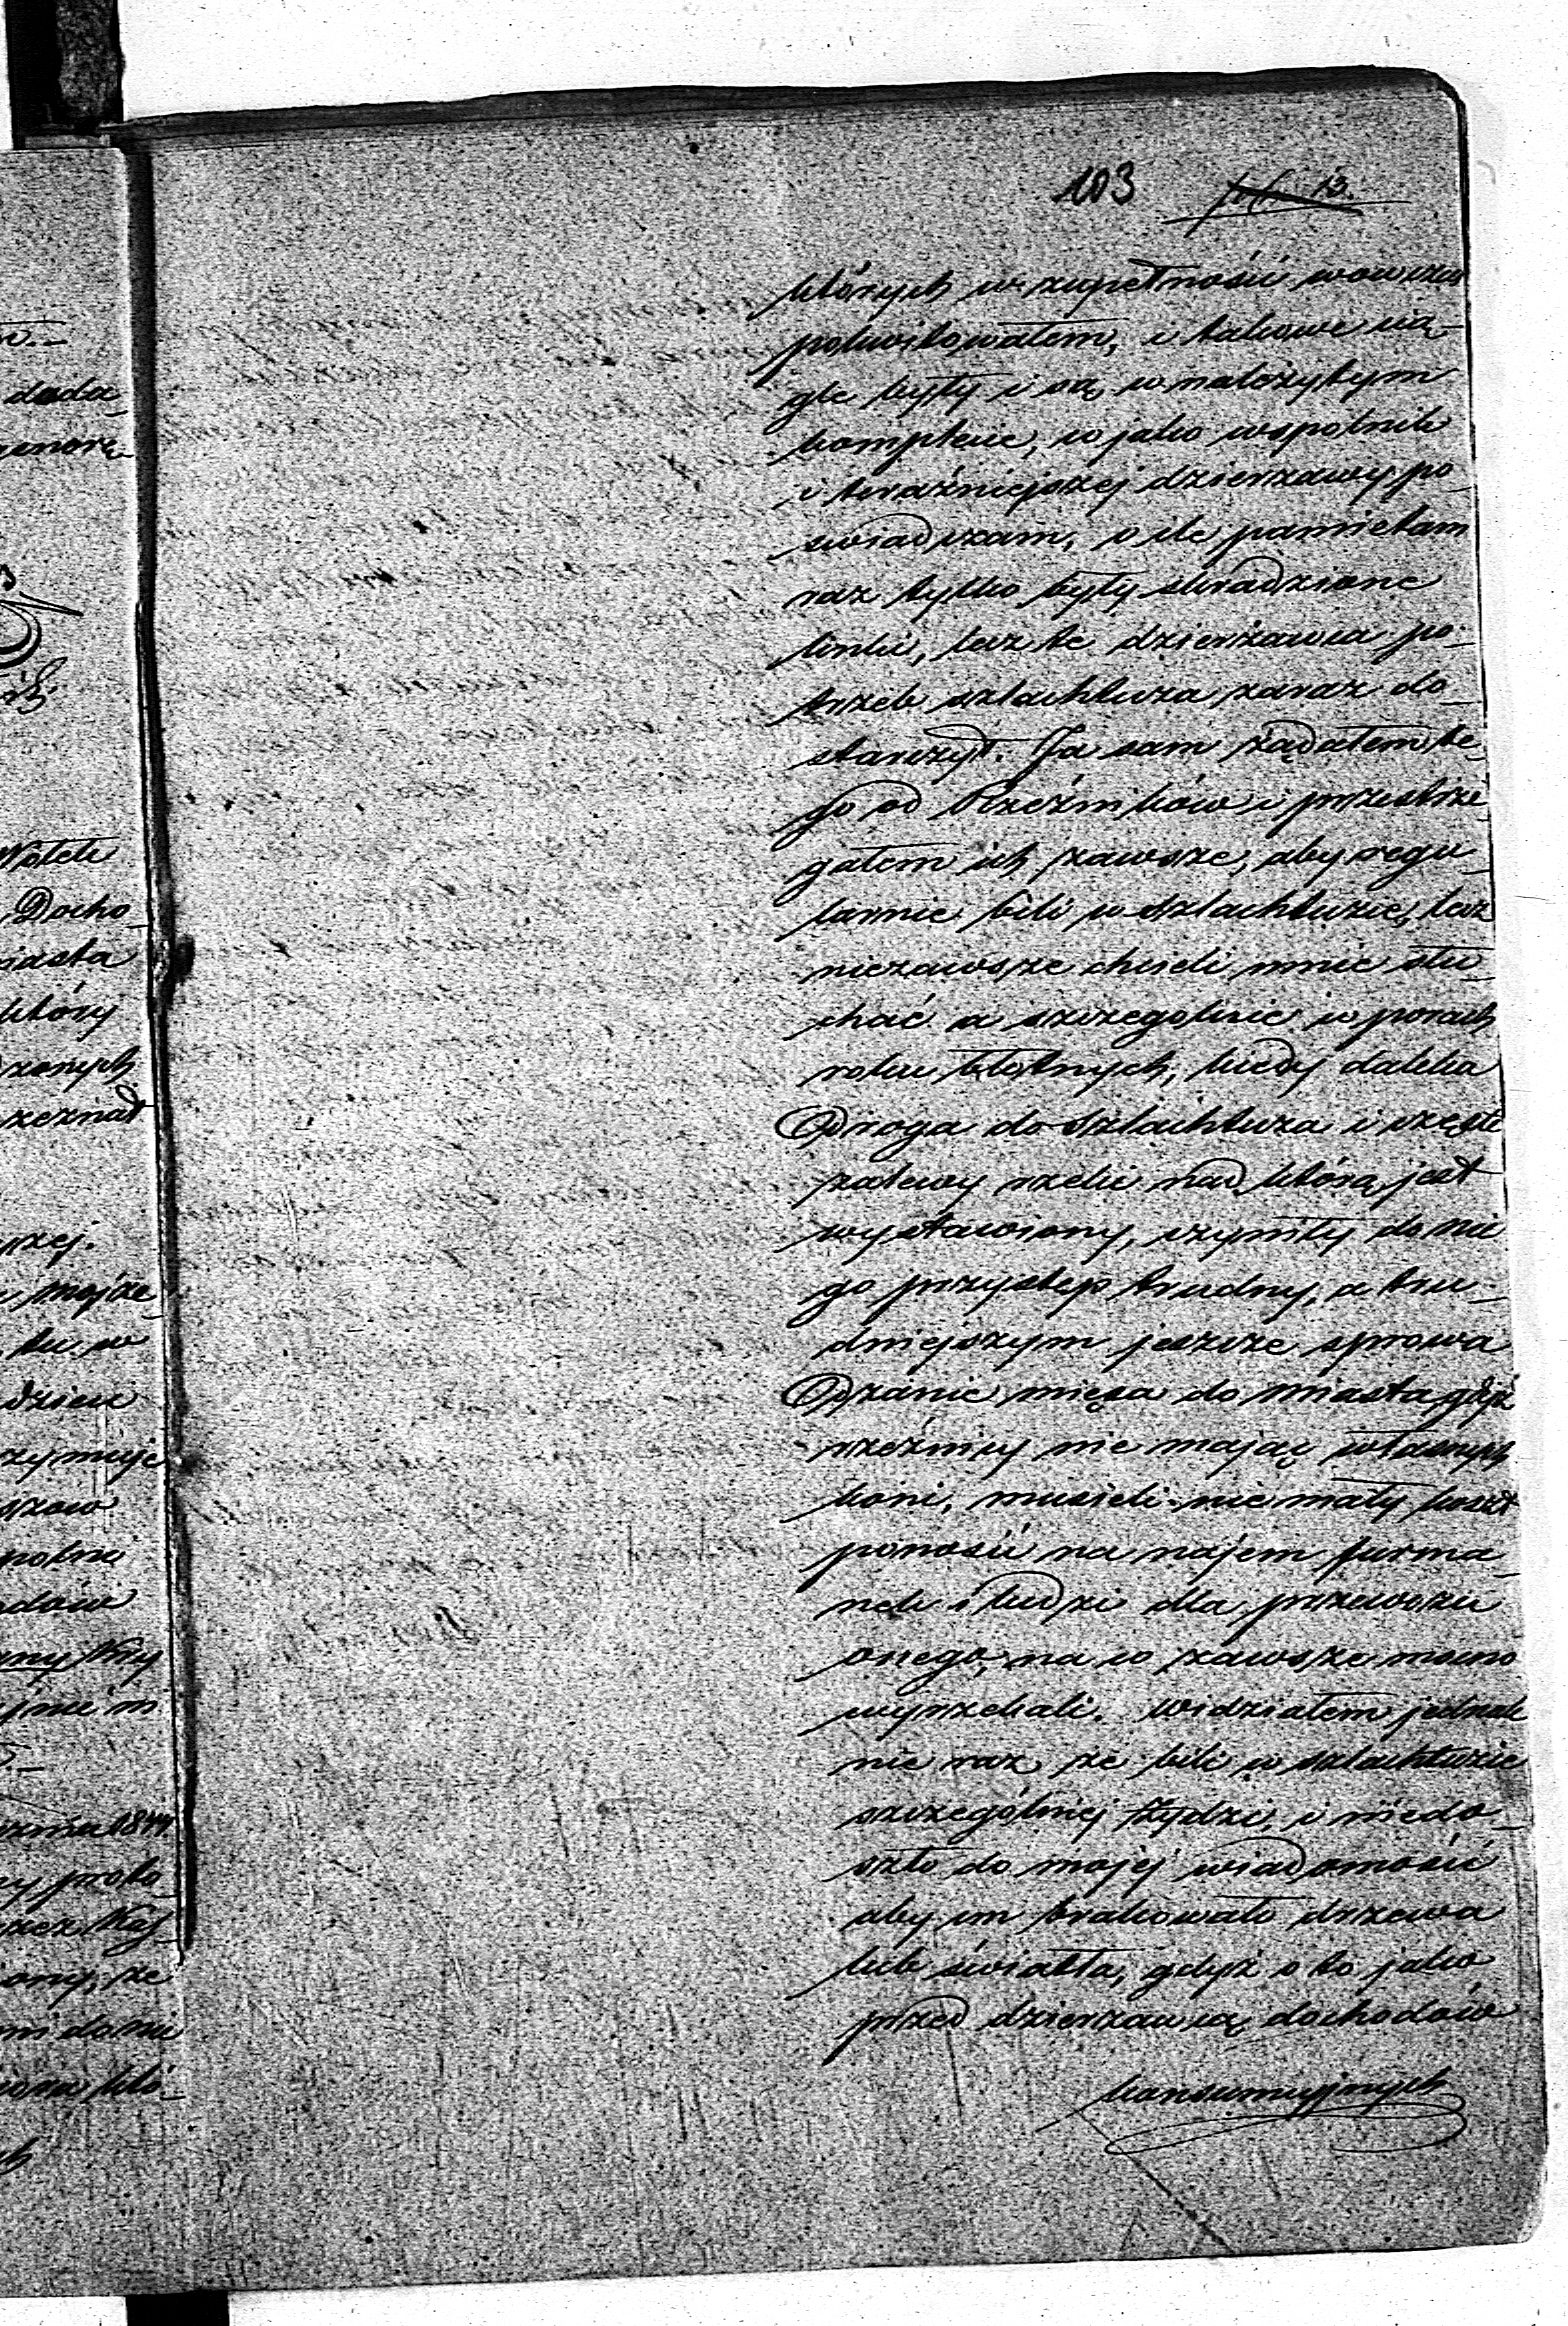 103
13.
których w zupełności wowczas
pokwitowałem, i takowe cią-
gle były i są w należytym
komplecie, co jako wspolnik
i teraźniejszej dzierzawy po-
swiadczam, o ile pamietam
raz tylko były skradzione
linki, lecz te dzierżawca po-
trzeb szlachtuza zaraz do-
starczył. Ja sam żądałem te
go od Rzeźników i przestrze
gałem ich zawsze, aby regu-
larnie bili w szlachtuzie, lecz
niezawsze chcieli mnie słu-
chać a szczegolnie w porach
roku błotnych, kiedy daleka
Droga do szlachtuza i częste
zalewy rzeki nad którą jest
wystawiony, czyniły do nie
go przystęp trudny, a tru-
dniejszym jeszcze sprowa
Dzanie mięsa do miasta, gdyż
rzeźnicy nie mając własnych
koni, musieli nie mały koszt
ponosić na najem furma-
nek i ludzi dla przewozu
onego, na co zawsze mocno
wyrzekali. Widziałem jednak
nie raz że bili w szlachtuzie
szczególniej Żydzi, i niedo-
szło do mojej wiadomości
aby im brakowało drzewa
lub światła, gdyż o to jako
przed dzierzawcą dochodów
konsumcyjnych
dada
Docho
iasta
który
rzej.
dzieci
szow
proto